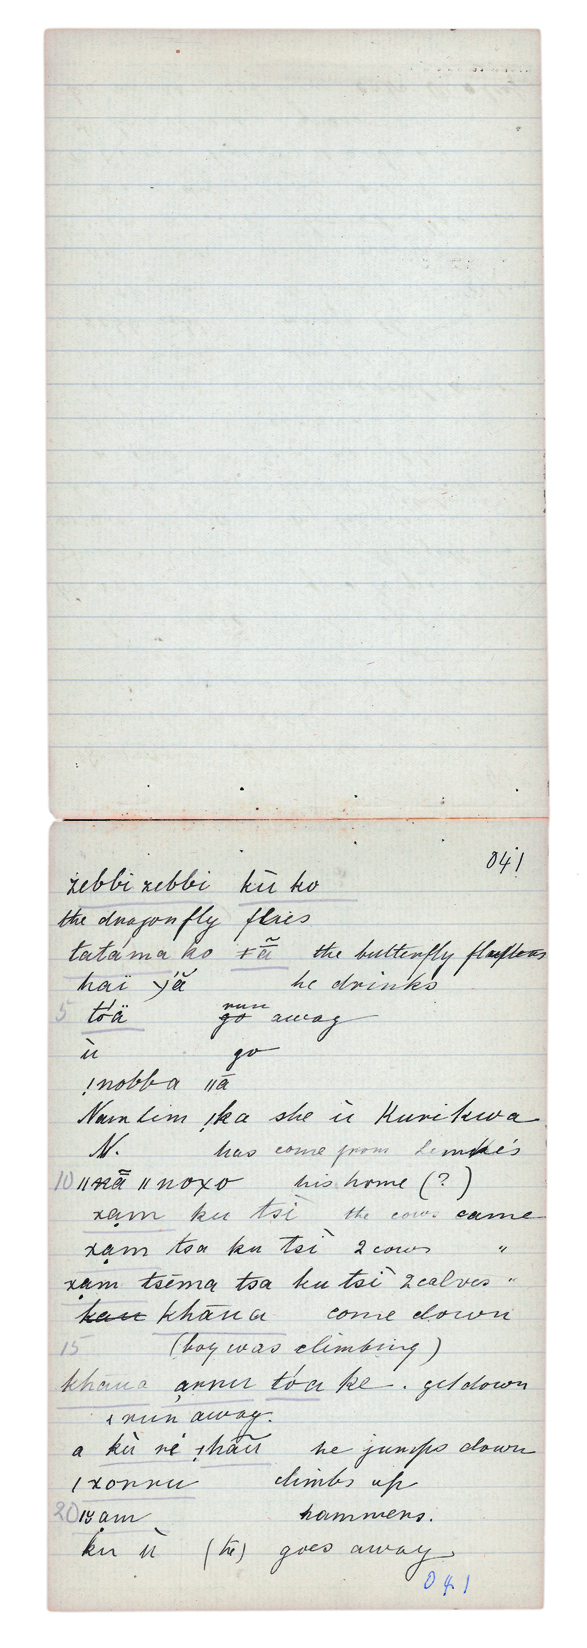 041
żebbi zebbi kù ko
the dragonfly flies
tatáma ko ǂã̄ the butterfly
haï ɣ'ã he drinks
5 tóä go run away
ù go
!nobba ǁā
Namtim !ka she ù Kurikwa
N. has come from
10 ǁnā ǁnoxo his home (?)
xạm ku tsì the cows came
xạm tsa ku tsì 2 cows "
xạm tsēma tsa ku tsì 2 calves "
kau khāua come down
15 (boy was climbing)
khaua ạrru tóa ke. get down
& run away.
a kù ré !hāū he jumps down
ǀxorru climbs up
20 hammers.
ku ù (he) goes away
041